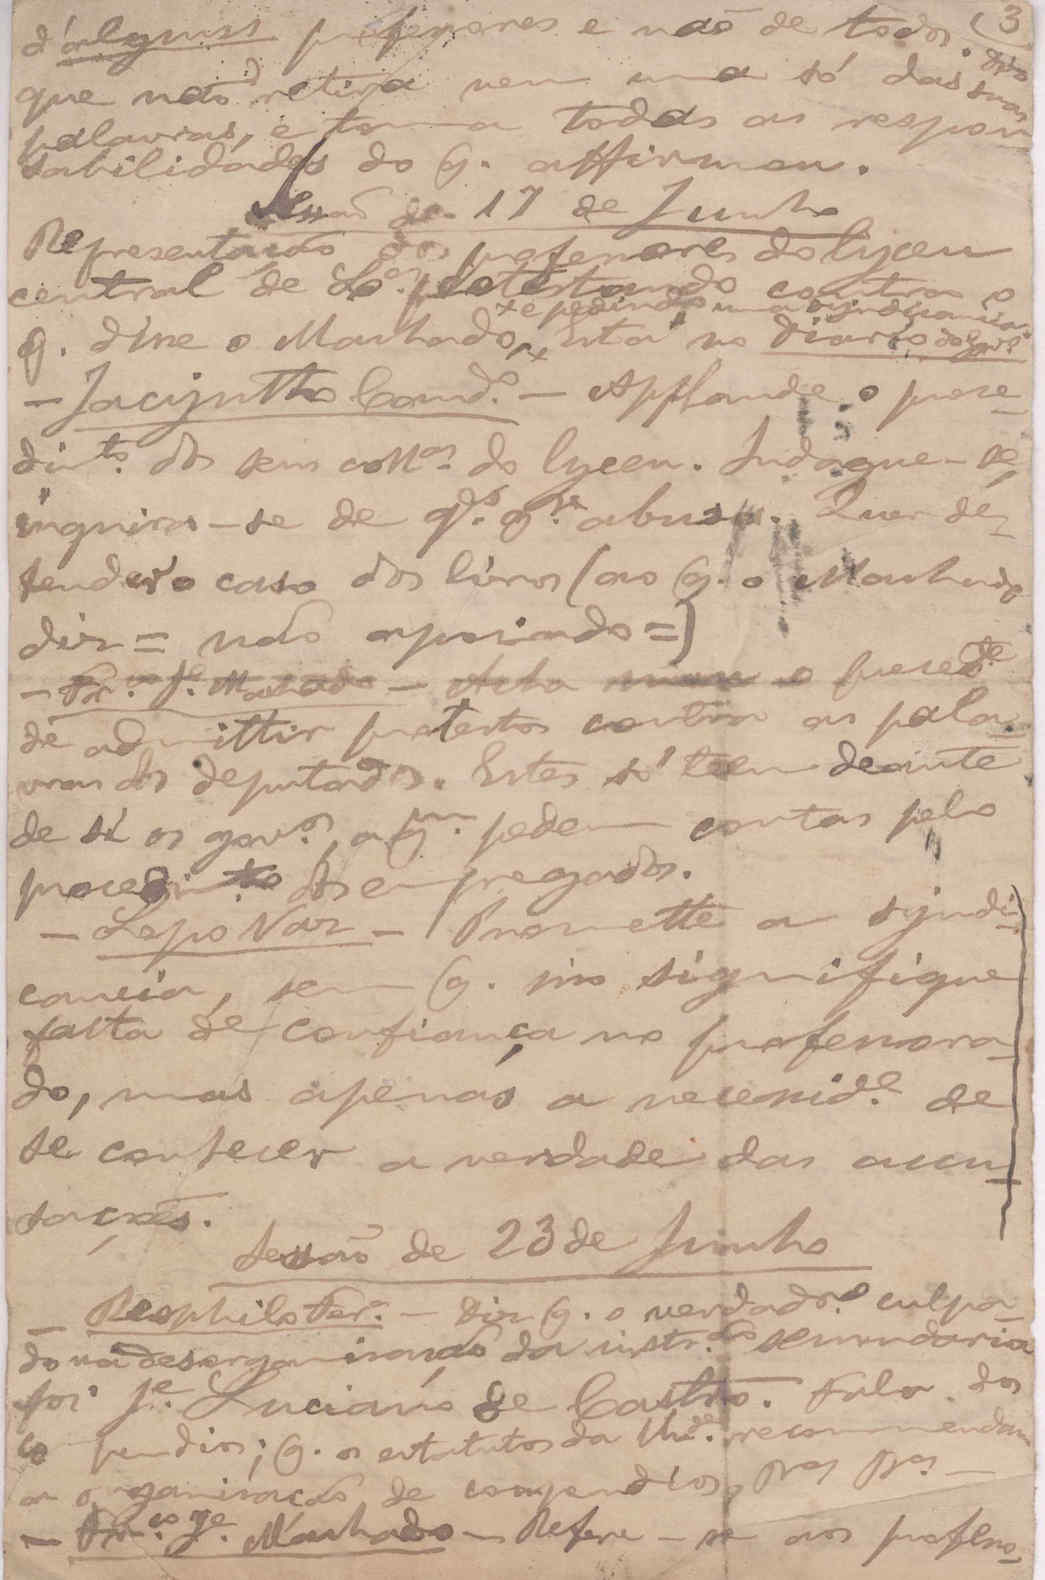 3
d'alguns professores e não de todos. Diz
que não retira nem uma só das suas
palavras, e toma todas as respon
sabilidades do q. affirmou.
Sessão de 17 de Junho
Representação dos professores do lyceu
central de Lx.ª protestando contra o
x e pedindo uma syndicancia.
q. disse o Machado x Está no Diario do Gov.º
- Jacyntho Cand.º - Applaude o proce-
dim.to dos seus coll.as do lyceu. Indague-se,
inquira-se de q.do q.r abuso. Quer de-
fender o caso dos livros (ao q. o Machado
diz = não apoiado =)
- Fr.co J.e Machado - Acha o preced.te
de admittir protestos contra as pala-
vras dos deputados. Estes só teem deante
de si os gov.os, a q.m pedem contas pelo
procedim.to dos empregados.
- Lopo Vaz - Promette a syndi-
cancia, sem q. isso signifique
falta de confiança no professora-
do, mas apenas a necessid.e de
se conhecer a verdade das accu-
sações.
Sessão de 23 de Junho
- Theophilo Fer.ª - Diz q. o verdad.º culpa-
do na desorganisação da instr.ão secundaria
foi J.e Luciano de Castro. Fala dos
compendios; q. os estatutos da Un.de recommendam
a organisação de compendios,
- Fr.co J.e Machado - Refere-se aos profess-